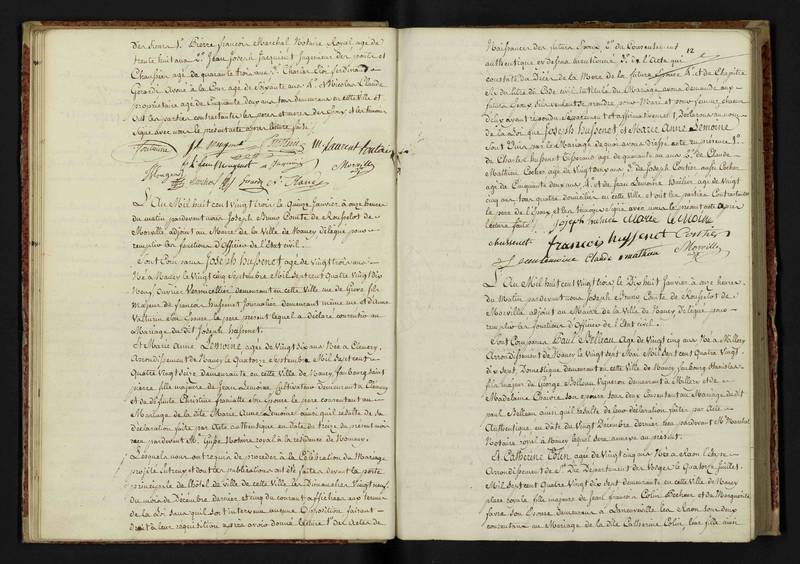 des Sieurs 1° Pierre françois Marchal Notaire Royal agé de
trente huit ans 2° Jean Joseph Jacquinet Ingenieur des ponts et
Chaussées agé de quarante trois ans 3° Charles Eloi Ferdinand
Gerardy Avoué à la Cour agé de Soixante ans 4° Nicolas Claude
propriétaire agé de Cinquante deux ans tous demeurans en cette Ville et
ont les parties contractantes les peres et meres des Epoux et les témoins
Signé avec nous le présent acte après lecture faite
Fontaine M. Laurent Fontaine
Mougeot Morville
Gerardy N. Claude
L'An Mil huit cent vingt trois le Quinze Janvier à onze heures
du matin pardevant nous Joseph Bruno Comte de Rouffelot de
Morville adjoint au Maire de la Ville de Nancy délégué pour
remplir les fonctions d'Officier de l'état civil
Sont Comparus Joseph Hussenet agé de vingt trois ans
Né à Nancy le vingt cinq septembre Mil sept cent Quatre vingt dix
Neuf Ouvrier Vermicellier demeurant en cette Ville rue de Grève fils
majeur de françois Hussenet Journalier demeurant même rue et d'Anne
Vautrin son Epouse le pere présent lequel a déclaré consentir au
Mariage du dit Joseph Hussenet.
Et Marie Anne Lemoine agée de vingt six ans Née à Clémery
Arrondissement de Nancy le Quatorze septembre Mil sept cent
Quatre vingt Seize demeurante en cette Ville de Nancy, faubourg saint
pierre, fille majeure de Jean Lemoine Cultivateur demeurant à Clémery
et de défunte Christine son Epouse le pere consentant au
Mariage de la dite Marie Anne Lemoine ainsi qu'il résulte de sa
déclaration faite par Acte authentique en date du treize du présent mois
reçu pardevant Me Notaire royal à la résidence de Nomeny.
Lesquels nous ont requis de procéder à la Célébration du Mariage
projetté entr'eux et dont les publications ont été faites devant la porte
principale de l'hôtel de Ville de cette Ville les Dimanches vingt neuf
du mois de Décembre dernier et cinq du courant affichées aux termes
de la Loi sans qu'il soit intervenu aucune Opposition faisant
droit à leur requisition après avoir donné lecture 1° des Actes de
12
Naissances des futurs Epoux 2° du Consentement
authentique ci dessus mentionné 3° de l'Acte qui
constate du Décès de la Mere de la future Epouse 4° et du Chapitre
VI du livre du Code civil intitulé du Mariage avons demandé aux
futurs Epoux s'ils veulent se prendre pour Mari et pour femme, chacun
d'eux ayant répondu séparément et affirmativement, Déclarons au nom
de la Loi que Joseph Hussenet et Marie Anne Lemoine
sont Unis par le Mariage de quoi avons dressé acte en présence 1°
de Charles Hussenet agé de quarante un ans 2° de Claude
Mathieu Cocher agé de vingt deux ans 3° de Joseph Cortier aussi Cocher
agé de Cinquante deux ans 4° et de Jean Lemoine Huilier agé de vingt
cinq ans tous quatre domiciliés en cette Ville et ont les parties Contractantes
le pere de l'Epoux et les témoins signé avec nous le présent acte après
lecture faite Joseph husnet Marie le Moine
chussenet François hussenet Cortier
jean lemoine Claude Mathieu Morville
L'An Mil huit cent vingt trois, le Dix huit Janvier à onze heures
du Matin pardevant nous Joseph Bruno Comte de Rouffelot de
Morville, adjoint au Maire de la Ville de Nancy délégué pour
remplir les fonctions d'Officier de l'Etat civil.
Sont Comparus Paul Belleau Agé de vingt cinq ans Né à Millery
Arrondissement de Nancy le vingt sept Mai Mil sept cent Quatre vingt
dix sept, Domestique demeurant en cette Ville de Nancy faubourg Stanislas
fils majeur de George Belleau Vigneron demeurant à Millery et de
Madelaine Chauvé, son epouse tous deux Consentant au Mariage dudit
paul Belleau ainsi qu'il résulte de leur déclaration faite par Acte
Authentique en date du vingt Décembre dernier reçu pardevant Me Marchal
Notaire royal à Nancy lequel sera annexé au présent.
Et Catherine Colin agée de vingt cinq ans Née à Raon l'Etape
Arrondissement de St Dié Département des Vosges le Quatorze Juillet
Mil sept cent Quatre vingt dix sept demeurante en cette Ville de Nancy
place royale fille majeure de Jean françois Colin Pêcheur et de Marguerite
favre son Epouse demeurans à Laneuveville les Raon tous deux
consentans au Mariage de la dite Catherine Colin leur fille ainsi